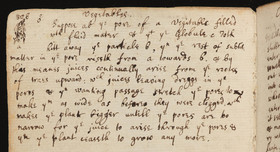 Vegetables.
Suppose ab yᵉ pore of a Vegetable filled
wᵗʰ fluid mater & yᵗ yᵉ Globule c doth
hit away yᵉ particle b, yⁿ yᵉ rest of subtile
matter in yᵉ pore riseth from a towards b, & by
this meanes juices continually arise from yᵉ rootes
of trees upward, wᶜʰ juices leaving dreggs in yᵉ
pores & yⁿ wanting passage stretch yᵉ pores to
make yᵐ as wide as before they were clogged. wᶜʰ
makes yᵉ plant bigger untill yᵉ pores are too
narrow for yᵉ juice to arise through yᵉ pores &
yⁿ yᵉ plant ceaseth to grow any more.